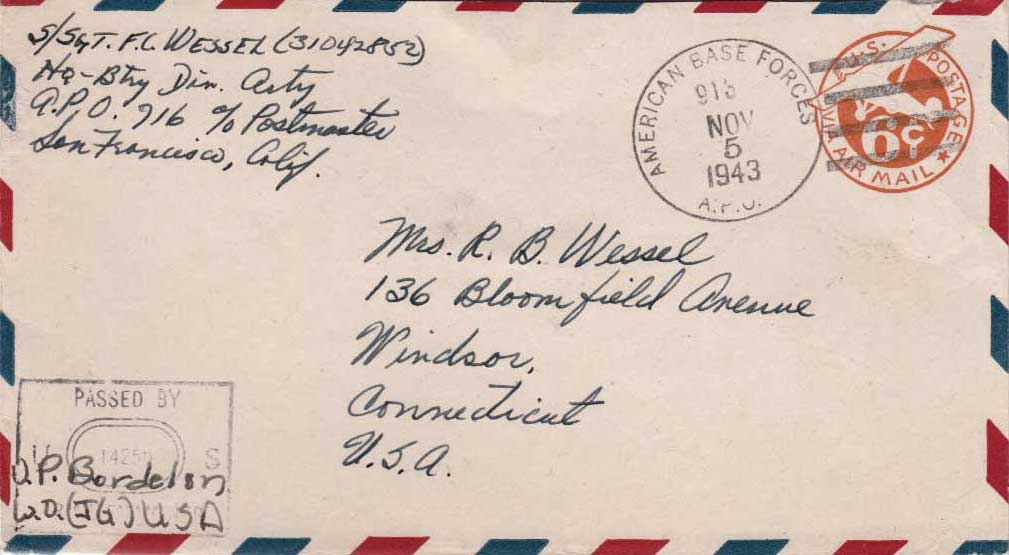 S/SgT. F.C. WESSEL (31042852)
Hq-Btry Div. Arty
A.P.O. 716 % Postmaster
San Francisco, Calif.
AMERICAN BASE FORCES
NOV
5
1943
A.P.O.
U.S. POSTAGE
6¢
VIA AIR MAIL
Mrs. R. B. Wessel
136 Bloomfield Avenue
Windsor,
Connecticut
U.S.A.
PASSED BY
S
Bordelon
USA